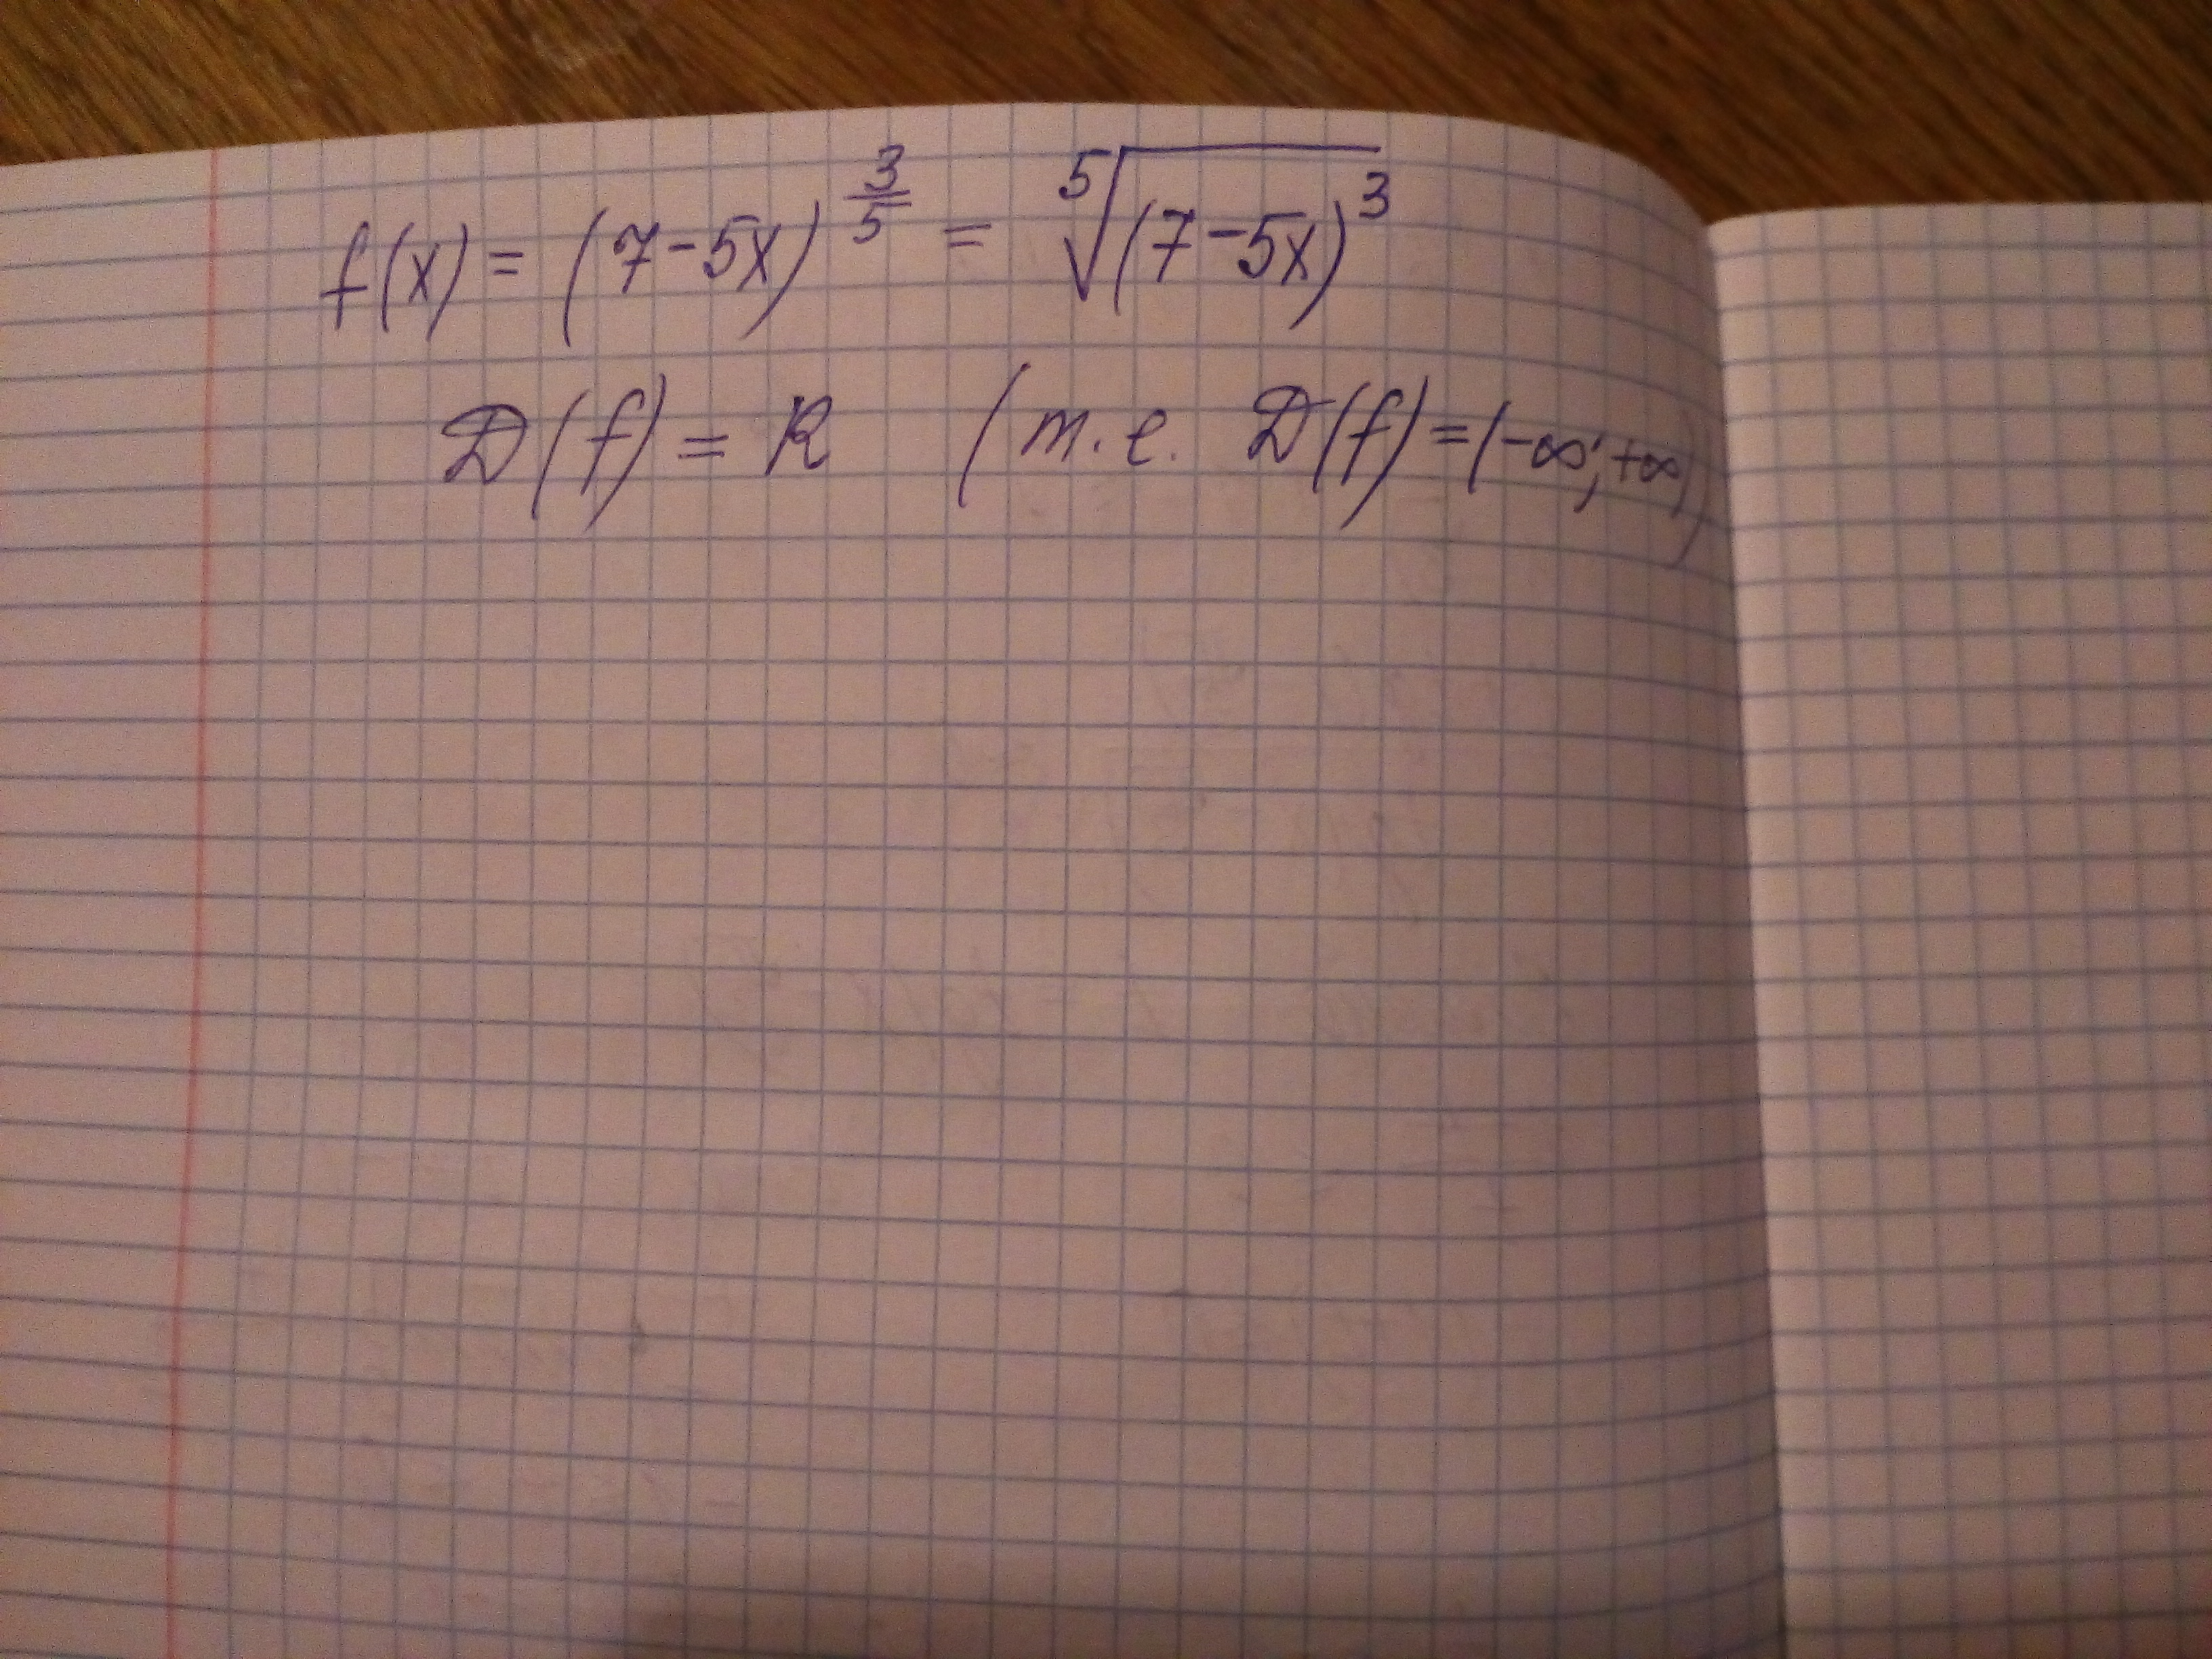 f(x) = (7-5x)^{3/5} = ⁵√(7-5x)³
D(f) = R (т.е. D(f)=(-∞;+∞))